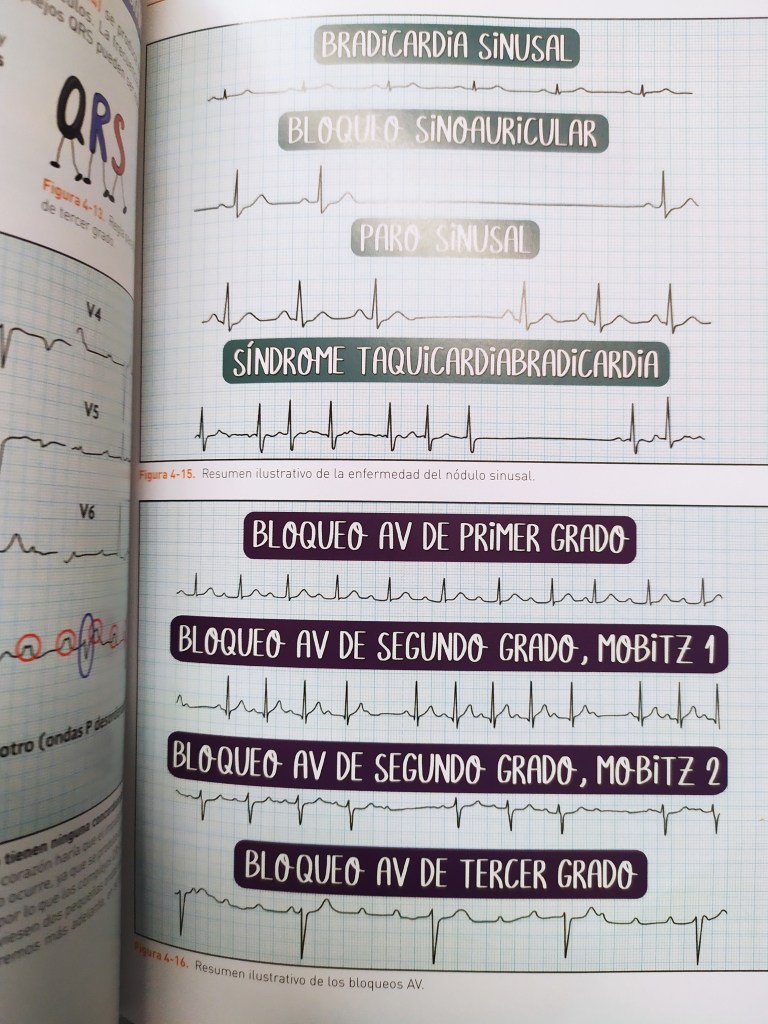 se
La
QRS pueden
QRS
Figura 4-13.
de tercer grado.
V4
V5
V6
otro (ondas P
tienen ninguna
corazón haría que el
ocurre, ya que se
por lo que los
viesen dos pequeñas
remos más adelante
BRADICARDIA SINUSAL
BLOQUEO SINOAURICULAR
PARO SINUSAL
SÍNDROME TAQUICARDIABRADICARDIA
Figura 4-15. Resumen ilustrativo de la enfermedad del nódulo sinusal.
BLOQUEO AV DE PRIMER GRADO
BLOQUEO AV DE SEGUNDO GRADO, MOBITZ 1
BLOQUEO AV DE SEGUNDO GRADO, MOBITZ 2
BLOQUEO AV DE TERCER GRADO
Figura 4-16. Resumen ilustrativo de los bloqueos AV.